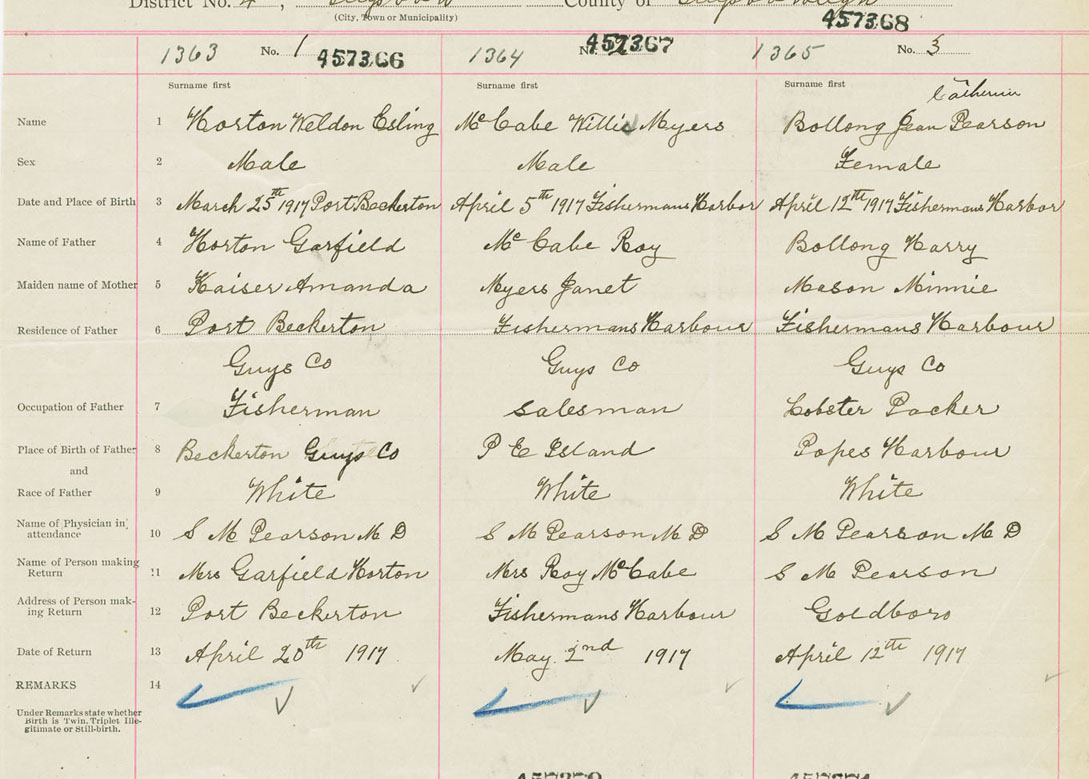 District No. 4, County of
(City, Town or Municipality)
457368
1363 No. 1 457366 1364 No. 457367 1365 No. 3
Surname first Surname first Surname first
Catherine
Name 1 Horton Weldon Esling McCabe Willis Myers Bollong Jean Pearson
Sex 2 Male Male Female
Date and Place of Birth 3 March 25th 1917 Port Beckerton April 5th 1917 Fishermans Harbor April 12th 1917 Fishermans Harbor
Name of Father 4 Horton Garfield McCabe Roy Bollong Harry
Maiden name of Mother 5 Kaiser Amanda Myers Janet Mason Minnie
Residence of Father 6 Port Beckerton Fishermans Harbour Fishermans Harbour
Guys Co Guys Co Guys Co
Occupation of Father 7 Fisherman Salesman Lobster Packer
Place of Birth of Father 8 Beckerton Guys Co P E Island Popes Harbour
and
Race of Father 9 White White White
Name of Physician in attendance 10 S M Pearson M D S M Pearson M D S M Pearson M D
Name of Person making Return 11 Mrs Garfield Horton Mrs Roy McCabe S M Pearson
Address of Person mak-
ing Return 12 Port Beckerton Fishermans Harbour Goldboro
Date of Return 13 April 20th 1917 May 2nd 1917 April 12th 1917
REMARKS 14
Under Remarks state whether
Birth is Twin, Triplet Ille-
gitimate or Still-birth.